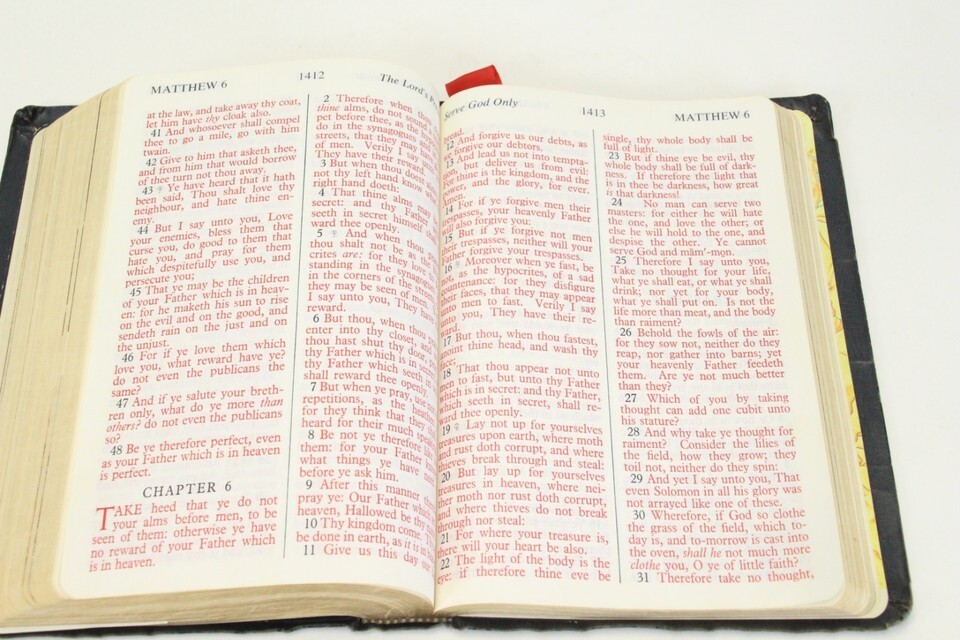 MATTHEW 6
1412
The Lord's
at the law, and take away thy coat,
let him have thy cloak also.
41 And whosoever shall compel
thee to go a mile, go with him
twain.
42 Give to him that asketh thee,
and from him that would borrow
of thee turn not thou away.
43 ¶ Ye have heard that it hath
been said, Thou shalt love thy
neighbour, and hate thine en-
emy.
44 But I say unto you, Love
your enemies, bless them that
curse you, do good to them that
hate you, and pray for them
which despitefully use you, and
persecute you;
45 That ye may be the children
of your Father which is in heav-
en: for he maketh his sun to rise
on the evil and on the good, and
sendeth rain on the just and on
the unjust.
46 For if ye love them which
love you, what reward have ye?
do not even the publicans the
same?
47 And if ye salute your breth-
ren only, what do ye more than
others? do not even the publicans
so?
48 Be ye therefore perfect, even
as your Father which is in heaven
is perfect.
CHAPTER 6
TAKE heed that ye do not
your alms before men, to be
seen of them: otherwise ye have
no reward of your Father which
is in heaven.
2 Therefore when
thine alms, do not sound
pet before thee, as the
do in the synagogues
streets, that they may
of men. Verily I say
They have their reward.
3 But when thou doest
not thy left hand know
right hand doeth:
4 That thine alms may
secret: and thy Father
seeth in secret himself
ward thee openly.
5 ¶ And when thou
thou shalt not be as
crites are: for they love
standing in the synagogues
in the corners of the
they may be seen of men.
I say unto you, They have
reward.
6 But thou, when thou
enter into thy closet, and
thou hast shut thy door,
thy Father which is in
thy Father which seeth
shall reward thee openly.
7 But when ye pray, use
repetitions, as the
for they think that they
heard for their much
8 Be not ye therefore
what things ye have
before ye ask him.
9 After this manner
pray ye: Our Father which
heaven, Hallowed be thy
10 Thy kingdom come.
be done in earth, as it is
11 Give us this day our
Serve God Only
1413
MATTHEW 6
bread.
12 And forgive us our debts, as
we forgive our debtors.
13 And lead us not into tempta-
tion, but deliver us from evil:
For thine is the kingdom, and the
power, and the glory, for ever.
14 For if ye forgive men their
trespasses, your heavenly Father
will also forgive you:
15 But if ye forgive not men
their trespasses, neither will your
Father forgive your trespasses.
16 ¶ Moreover when ye fast, be
not, as the hypocrites, of a sad
countenance: for they disfigure
their faces, that they may appear
unto men to fast. Verily I say
unto you, They have their re-
ward.
17 But thou, when thou fastest,
anoint thine head, and wash thy
face;
18 That thou appear not unto
men to fast, but unto thy Father
which is in secret: and thy Father,
which seeth in secret, shall re-
ward thee openly.
19 ¶ Lay not up for yourselves
treasures upon earth, where moth
and rust doth corrupt, and where
thieves break through and steal:
20 But lay up for yourselves
treasures in heaven, where nei-
ther moth nor rust doth corrupt,
and where thieves do not break
through nor steal:
21 For where your treasure is,
there will your heart be also.
22 The light of the body is the
eye: if therefore thine eye be
single, thy whole body shall be
full of light.
23 But if thine eye be evil, thy
whole body shall be full of dark-
ness. If therefore the light that
is in thee be darkness, how great
is that darkness!
24 No man can serve two
masters: for either he will hate
the one, and love the other; or
else he will hold to the one, and
despise the other. Ye cannot
serve God and măm'-mon.
25 Therefore I say unto you,
Take no thought for your life,
what ye shall eat, or what ye shall
drink; nor yet for your body,
what ye shall put on. Is not the
life more than meat, and the body
than raiment?
26 Behold the fowls of the air:
for they sow not, neither do they
reap, nor gather into barns; yet
your heavenly Father feedeth
them. Are ye not much better
than they?
27 Which of you by taking
thought can add one cubit unto
his stature?
28 And why take ye thought for
raiment? Consider the lilies of
the field, how they grow; they
toil not, neither do they spin:
29 And yet I say unto you, That
even Solomon in all his glory was
not arrayed like one of these.
30 Wherefore, if God so clothe
the grass of the field, which to-
day is, and to-morrow is cast into
the oven, shall he not much more
clothe you, O ye of little faith?
31 Therefore take no thought,